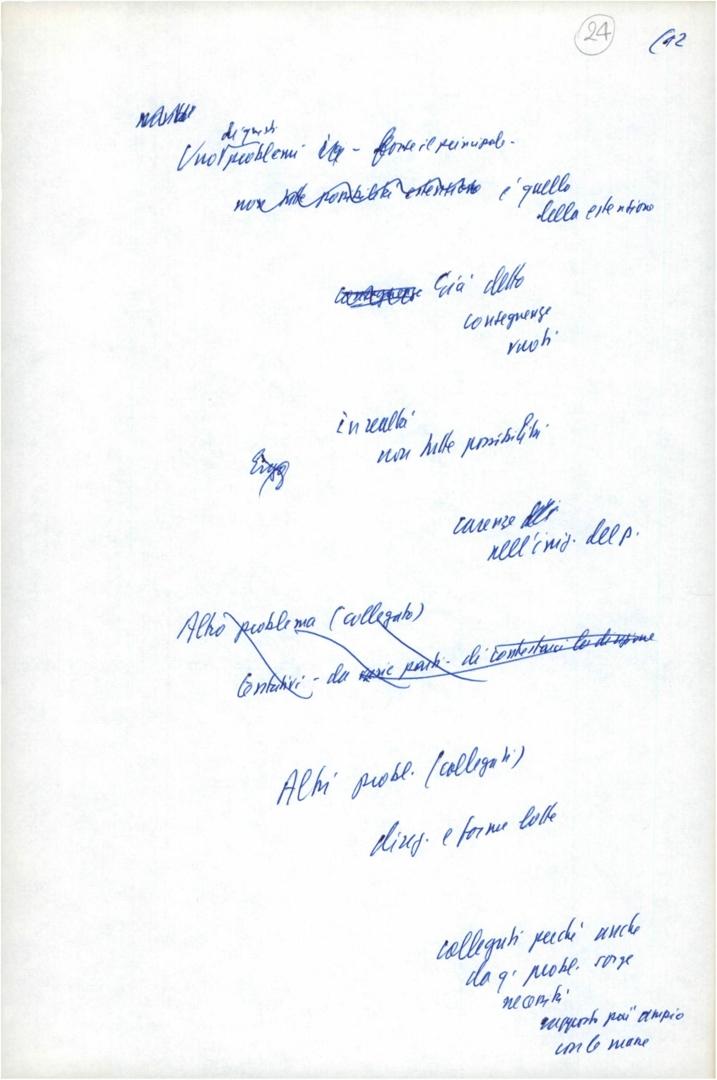 24
di questi
Uno problemi è q - forse il principale.
non tutte possibilità estensione è quello
della estensione
conseguenze Già detto
conseguenze
vuoti
in realtà
non tutte possibilità
carenze
nell'iniz. del p.
Altro problema (collegato)
Tentativi - da varie parti - di contestarci la direzione
Altri probl. (collegati)
direz. e forme lotte
collegati perché anche
da q. probl. sorge
necessità
rapporto più ampio
con le masse